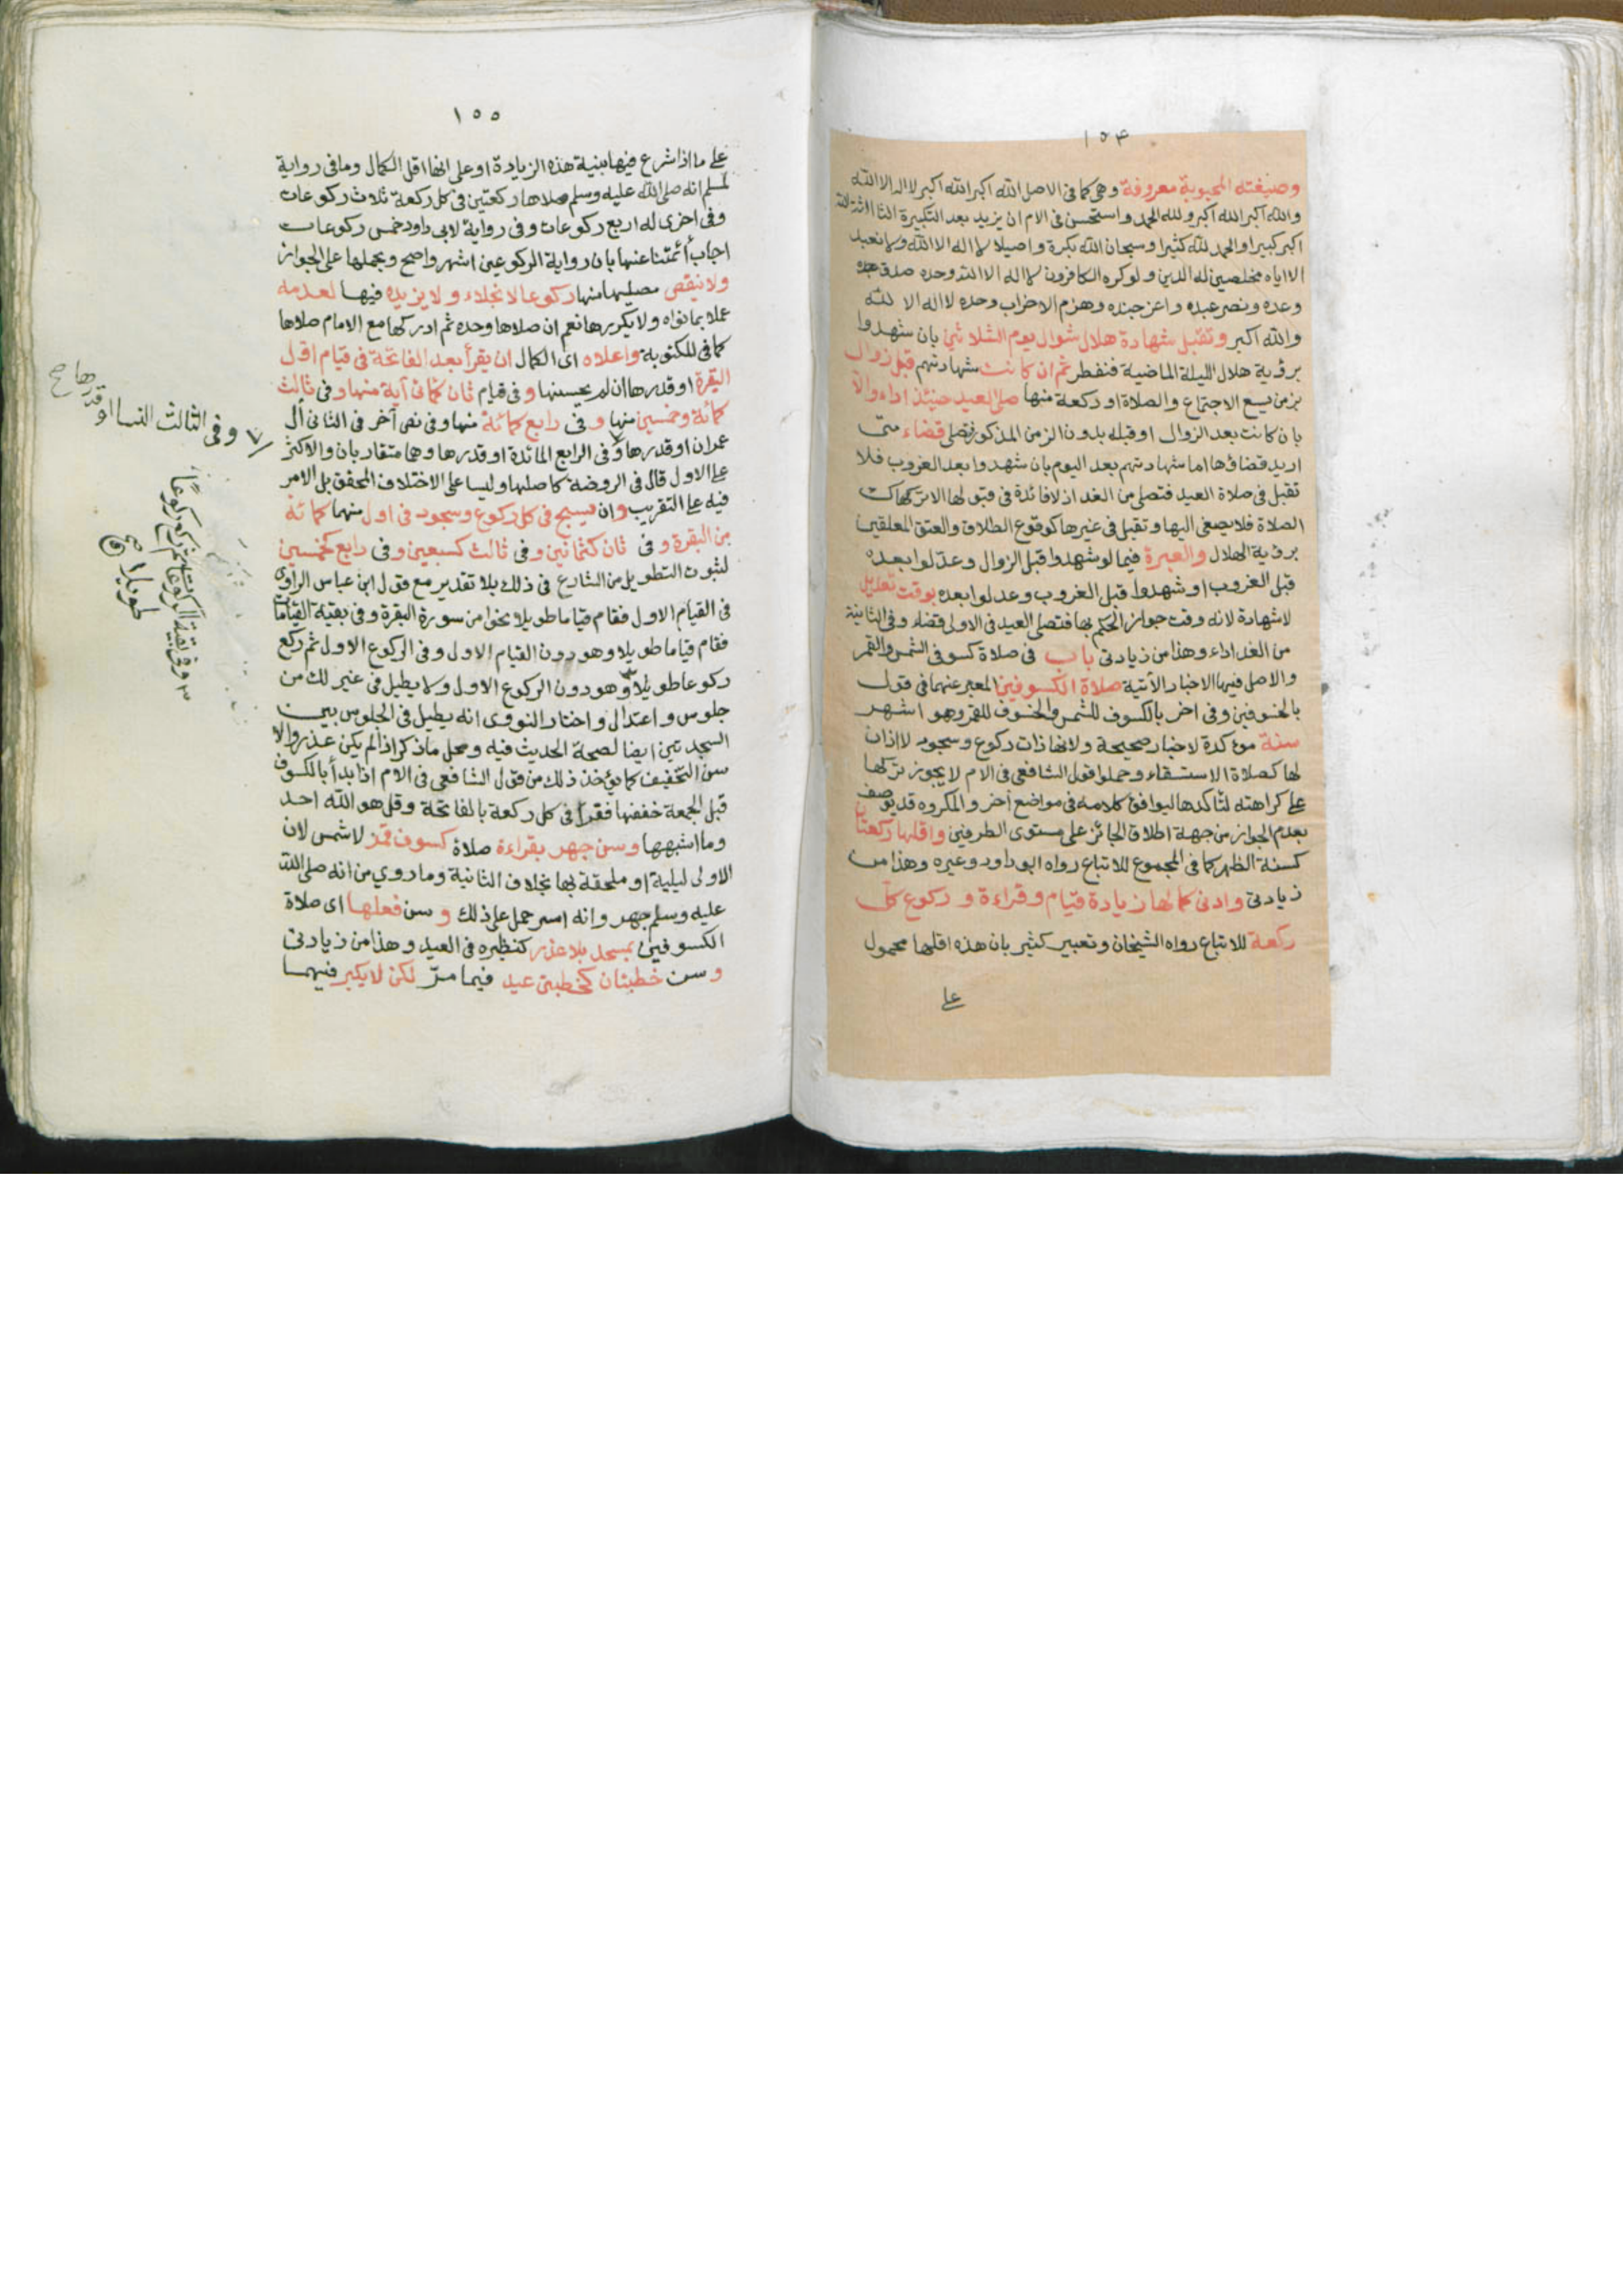 ١٥٤
وصيغته المحبوبة معروفة وهى كما فى الاصل الله اكبر الله اكبر الله اكبر لا اله الا الله
والله اكبر الله اكبر ولله الحمد واستحسن فى الام ان يزيد بعد التكبيرة الثالثة الله
اكبر كبيرا والحمد لله كثيرا وسبحان الله بكرة واصيلا لا اله الا الله ولا نعبد
الا اياه مخلصين له الدين ولو كره الكافرون لا اله الا الله وحده صدق وعده
وعده ونصر عبده واعز جنده وهزم الاحزاب وحده لا اله الا الله
والله اكبر وتقبل شهادة هلال شوال يوم الثلاثين بان شهدوا
برؤية هلال الليلة الماضية فنفطر ثم ان كانت شهادتهم قبل زوال
بزمن يسع الاجتماع والصلاة او ركعة منها صلى العيد حينئذ اداء والا
بان كانت بعد الزوال او قبله بدون الزمن المذكور فتصلى قضاء متى
اريد قضاؤها اما شهادتهم بعد اليوم بان شهدوا بعد الغروب فلا
تقبل فى صلاة العيد فتصلى من الغد اذ لا فائدة فى قبولها الا تركها كت
الصلاة فلا يصغى اليها وتقبل فى غيرها كوقوع الطلاق والعتق المعلقين
برؤية الهلال والعبرة فيما لو شهدوا قبل الزوال وعدلوا بعده
قبل الغروب او شهدوا قبل الغروب وعدلوا بعده بوقت تعديل
لا شهادة لانه وقت جواز الحكم بها فتصلى العيد فى الاولى قضاء وفى الثانية
من الغد اداء وهذا من زيادتى باب فى صلاة كسوفى الشمس والقمر
والاصل فيها الاخبار الآتية صلاة الكسوفين المعبر عنهما فى قول
بالخسوفين وفى اخر بالكسوف للشمس والخسوف للقمر وهو اشهر
سنة مؤكدة لاخبار صحيحة ولانها ذات ركوع وسجود لا اذان
لها كصلاة الاستسقاء وحملوا قول الشافعى فى الام لا يجوز تركها
على كراهته لتأكدها ليوافق كلامه فى مواضع أخر والمكروه قد يوصف
بعدم الجواز من جهة اطلاق الجائز على مستوى الطرفين واقلها ركعتان
كسنة الظهر كما فى المجموع للاتباع رواه ابو داود وغيره وهذا من
زيادتى وادنى كمالها زيادة قيام وقراءة و ركوع كل
ركعة للاتباع رواه الشيخان وتعبير كثير بان هذه اقلها محمول
على
١٥٥
على ما اذا شرع فيها بنية هذه الزيادة او على انها اقل الكمال وما فى رواية
لمسلم انه صلى الله عليه وسلم صلاها ركعتين فى كل ركعة ثلاث ركوعات
وفى اخرى له اربع ركوعات وفى رواية لابى داود خمس ركوعات
اجاب أئمتنا عنها بان رواية الركوعين اشهر واصح وبحملها على الجواز
ولا ينقص مصليها منها ركوعا لانجلاء ولا يزيده فيها لعدمه
عملا بما نواه ولا يكررها نعم ان صلاها وحده ثم ادركها مع الامام صلاها
كما فى المكتوبة واعلاه اى الكمال ان يقرأ بعد الفاتحة فى قيام اول
البقرة او قدرها ان لم يحسنها و فى قيام ثان كمائتى آية منها و فى ثالث
كمائة وخمسين منها و فى رابع كمائة منها وفى نص آخر فى الثانى آل
عمران او قدرها وفى الرابع المائدة او قدرها وهما متقاربان والاكثر
على الاول قال فى الروضة كاصلها وليسا على الاختلاف المحقق بل الامر
فيه على التقريب وان يسبح فى كل ركوع وسجود فى اول منهما كمائة
من البقرة و فى ثان كثمانين و فى ثالث كسبعين و فى رابع كخمسين
لثبوت التطويل من الشارع فى ذلك بلا تقدير مع قول ابن عباس الراوى
فى القيام الاول فقام قياما طويلا نحوا من سورة البقرة وفى بقية القيامات
فقام قياما طويلا وهو دون القيام الاول وفى الركوع الاول ثم ركع
ركوعا طويلا وهو دون الركوع الاول ولا يطيل فى غير ذلك من
جلوس واعتدال واختار النووى انه يطيل فى الجلوس بين
السجدتين ايضا لصحة الحديث فيه ومحل ما ذكر اذا لم يكن عذر والا
سن التخفيف كما يؤخذ ذلك من قول الشافعى فى الام اذا بدأ بالكسوف
قبل الجمعة خففها فقرأ فى كل ركعة بالفاتحة وقل هو الله احد
وما اشبهها وسن جهر بقراءة صلاة كسوف قمر لا شمس لان
الاولى ليلية او ملحقة بها بخلاف الثانية وما روي من انه صلى الله
عليه وسلم جهر وانه اسر حمل على ذلك و سن فعلها اى صلاة
الكسوفين بمسجد بلا عذر كنظيره فى العيد وهذا من زيادتى
و سن خطبتان كخطبتى عيد فيما مرّ لكن لا يكبر فيهما
وفى الثالث النسا او قدرها صح
وفى بقية الركوعات ثم ركع ركوعًا
طويلا صح